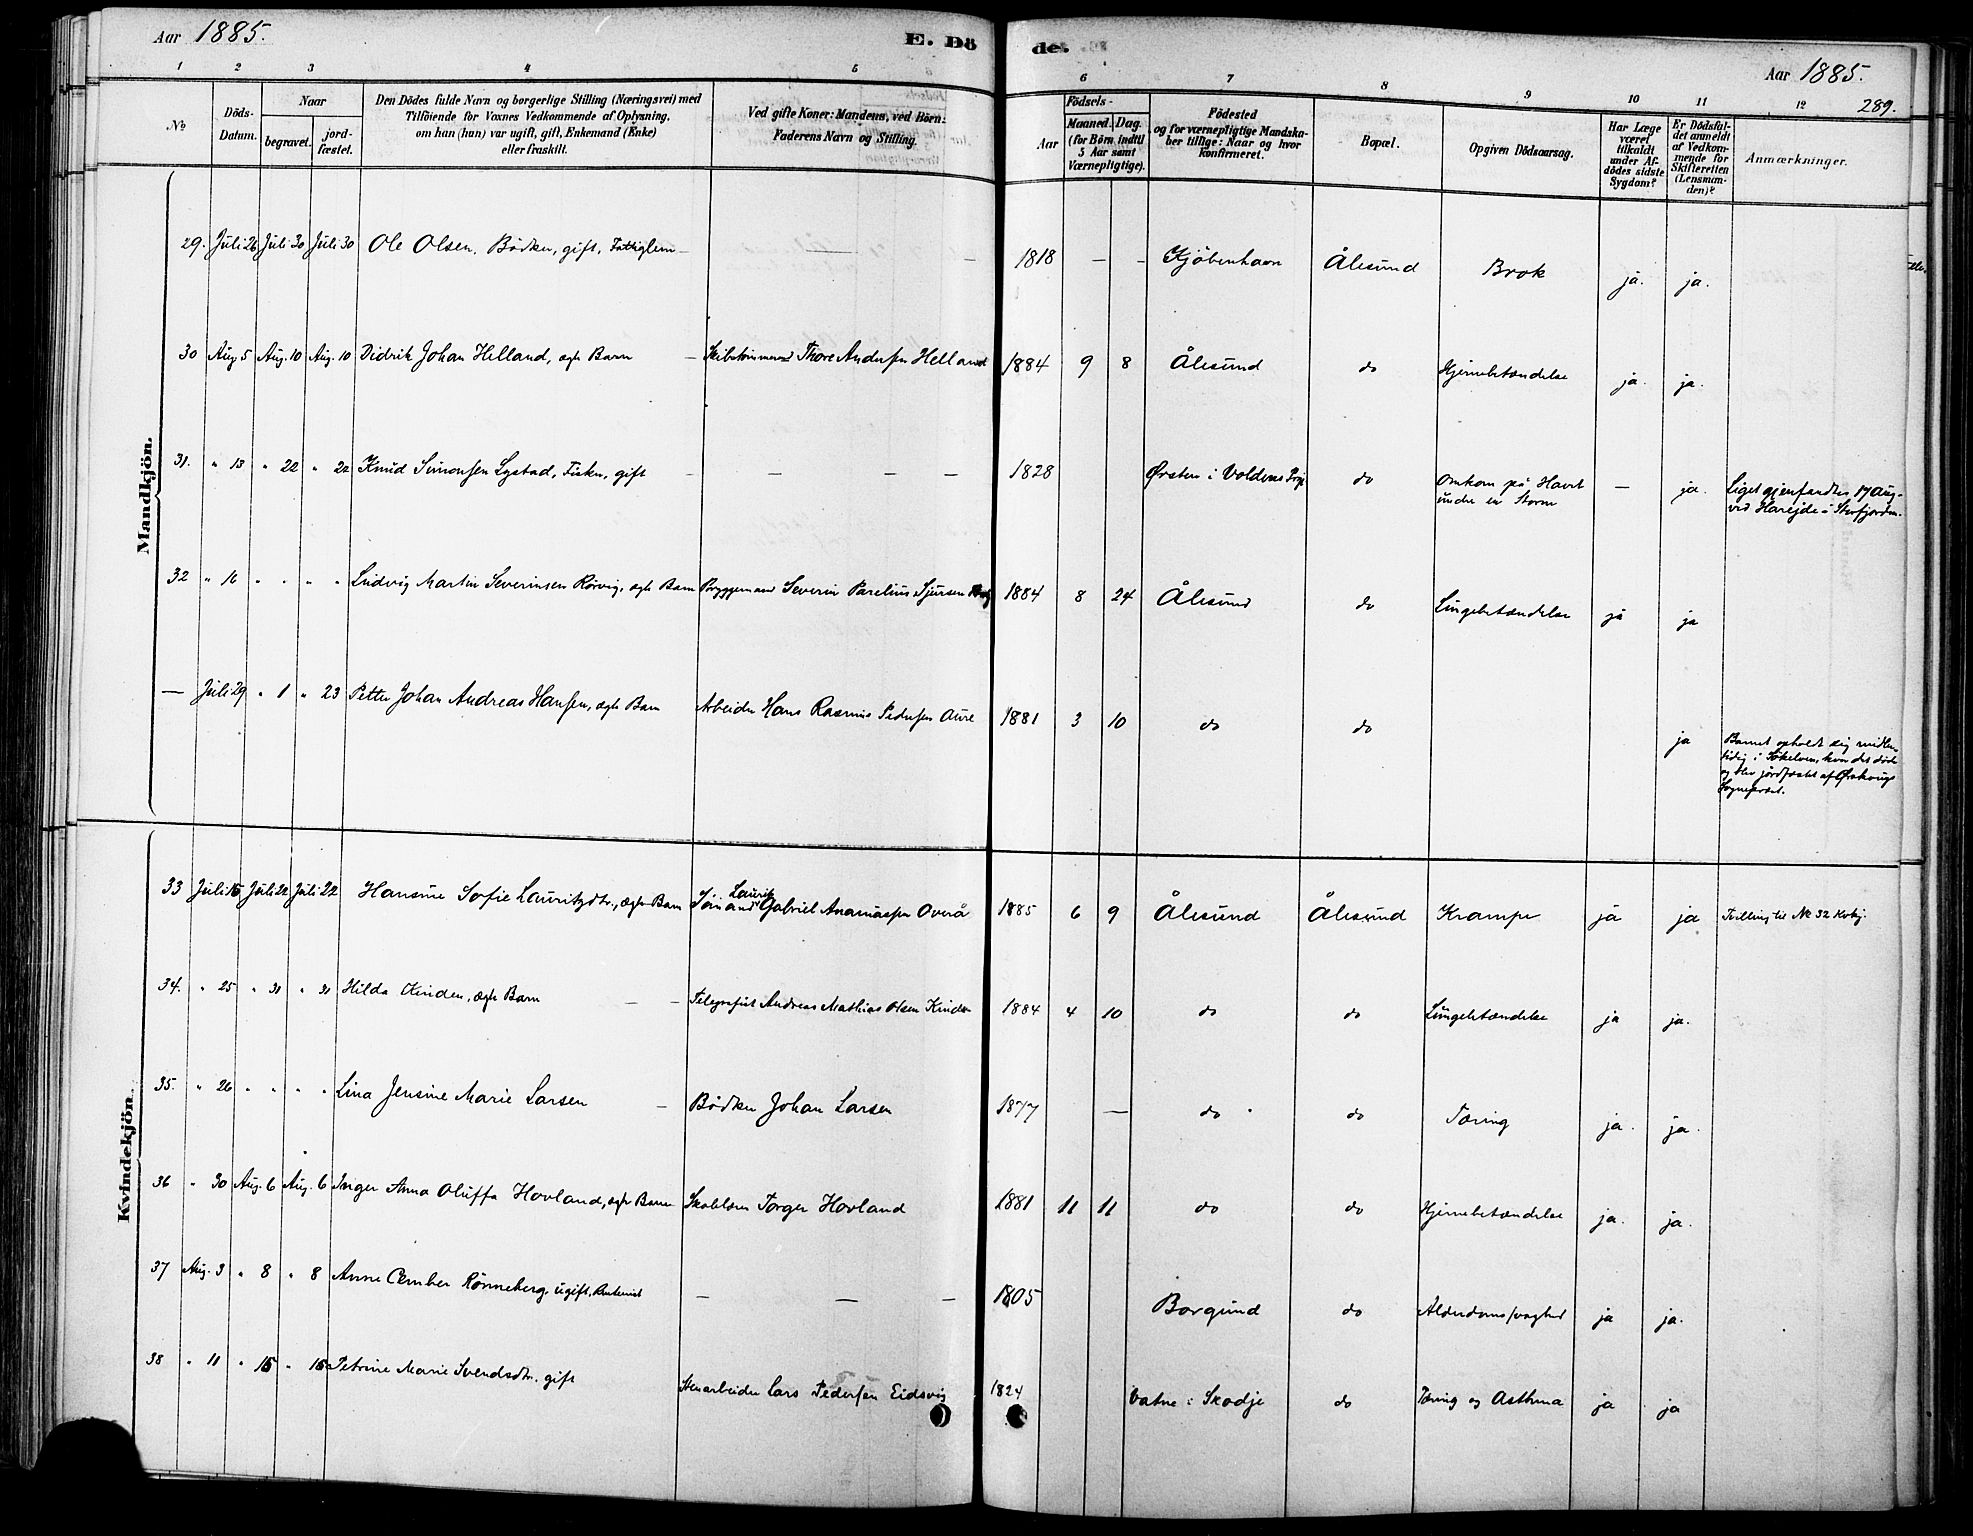 Aar 1885.
E. Dö
de.
Aar 1885.
289.
1 2 3 4 5 6 7 8 9 10 11 12
No
Döds-Datum.
Naar
begravet.
jord-fæstet.
Den Dödes fulde Navn og borgerlige Stilling (Næringsvei) med
Tilföiende for Voxnes Vedkommende af Oplysning,
om han (hun) var ugift, gift, Enkemand (Enke)
eller fraskilt.
Ved gifte Koner: Mandens, ved Börn:
Faderens Navn og Stilling.
Födsels-
Aar
Maaned. Dag.
(for Börn indtil
5 Aar samt
Værnepligtige).
Födested
og for værnepligtige Mandska-
ber tillige: Naar og hvor
Konfirmeret.
Bopæl.
Opgiven Dödsaarsag.
Har Læge
været
tilkaldt
under Af-
dödes sidste
Sygdom?
Er Dödsfal-
det anmeldt
af Vedkom-
mende for
Skifteretten
(Lensman-
den)?
Anmærkninger.
Mandkjön.
29. Juli 26 Juli 30 Juli 30 Ole Olsen, Bödker, gift, Fattiglem — — 1818 — — Kjöbenhavn Ålesund Brok ja. ja.
30 Aug 5 Aug. 10 Aug. 10 Didrik Johan Helland, ægte Barn — Thore Andersen Helland 1884 9 8 Ålesund do Hjernebetændelse ja. ja.
31. " 13 " 22 " 22 Knud Simonsen Lystad, Fisker, gift — — — — 1828 Ørsten i Voldens Prgj do Omkom på Havet
under en Storm — ja. Liget gjenfandtes 17 Aug.
ved Hareide i Storfjorden.
32 " 16 " " " " Ludvig Martin Severinsen Rörvig, ægte Barn Bryggemand Severin Parelius Sjursen 1884 8 24 Ålesund do Lungebetændelse ja ja
— Juli 29 " 1 " 23 Petter Johan Andreas Hansen, ægte Barn Arbeider Hans Rasmus Pedersen Aure 1881 3 10 do do ja Barnet opholdt sig midler-
tidig i Sökelven, hvor det döde
og blev jordfæstet af Ørskougs
Sognepræst.
Kvindekjön.
33 Juli 15 Juli 22 Juli 22 Hansine Sofie Lauritzdtr., ægte Barn Sömand Lauritz Gabriel Ananiassen Overå 1885 6 9 Ålesund Ålesund Krampe ja ja Tvilling til No 32 Kvkj.
34. " 25 " 31 " 31 Hilda Kinden, ægte Barn — — Telegrafist Andreas Mathias Olsen Kinden 1884 4 10 do do Lungebetændelse ja ja.
35. " 26 " " " " Lina Jensine Marie Larsen — Bödker Johan Larsen 1877 — do do Tæring ja. ja.
36 " 30 Aug. 6 Aug. 6 Inger Anna Oluffa Hovland, ægte Barn Skolelærer Torger Hovland 1881 11 11 do do Hjernebetændelse ja. ja.
37 Aug. 3 " 8 " 8 Anne Cember Rönneberg, ugift, — — — 1805 Borgund do Alderdomssvaghed ja ja.
38 " 11 " 15 " 15 Petrine Marie Svendsdtr. gift Stenarbeider Lars Pedersen Eidsvig 1824 Vatne i Skodje do Tæring og Asthma ja ja